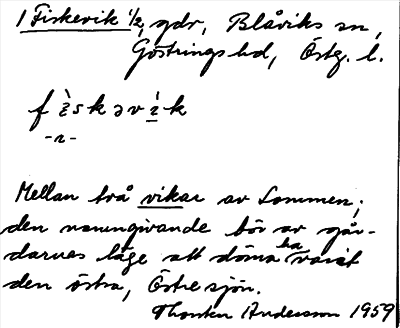 1 Fiskevik 1/2, gdr, Blåviks sn,
Göstrings hd, Östg. l.
f ì̱ s k ə v ì̱ k
-n-
Mellan två vikar av Sommen;
den namngivande bör av går-
darnas läge att döma ha varit
den östra, Östresjön.
Thorsten Andersson 1959